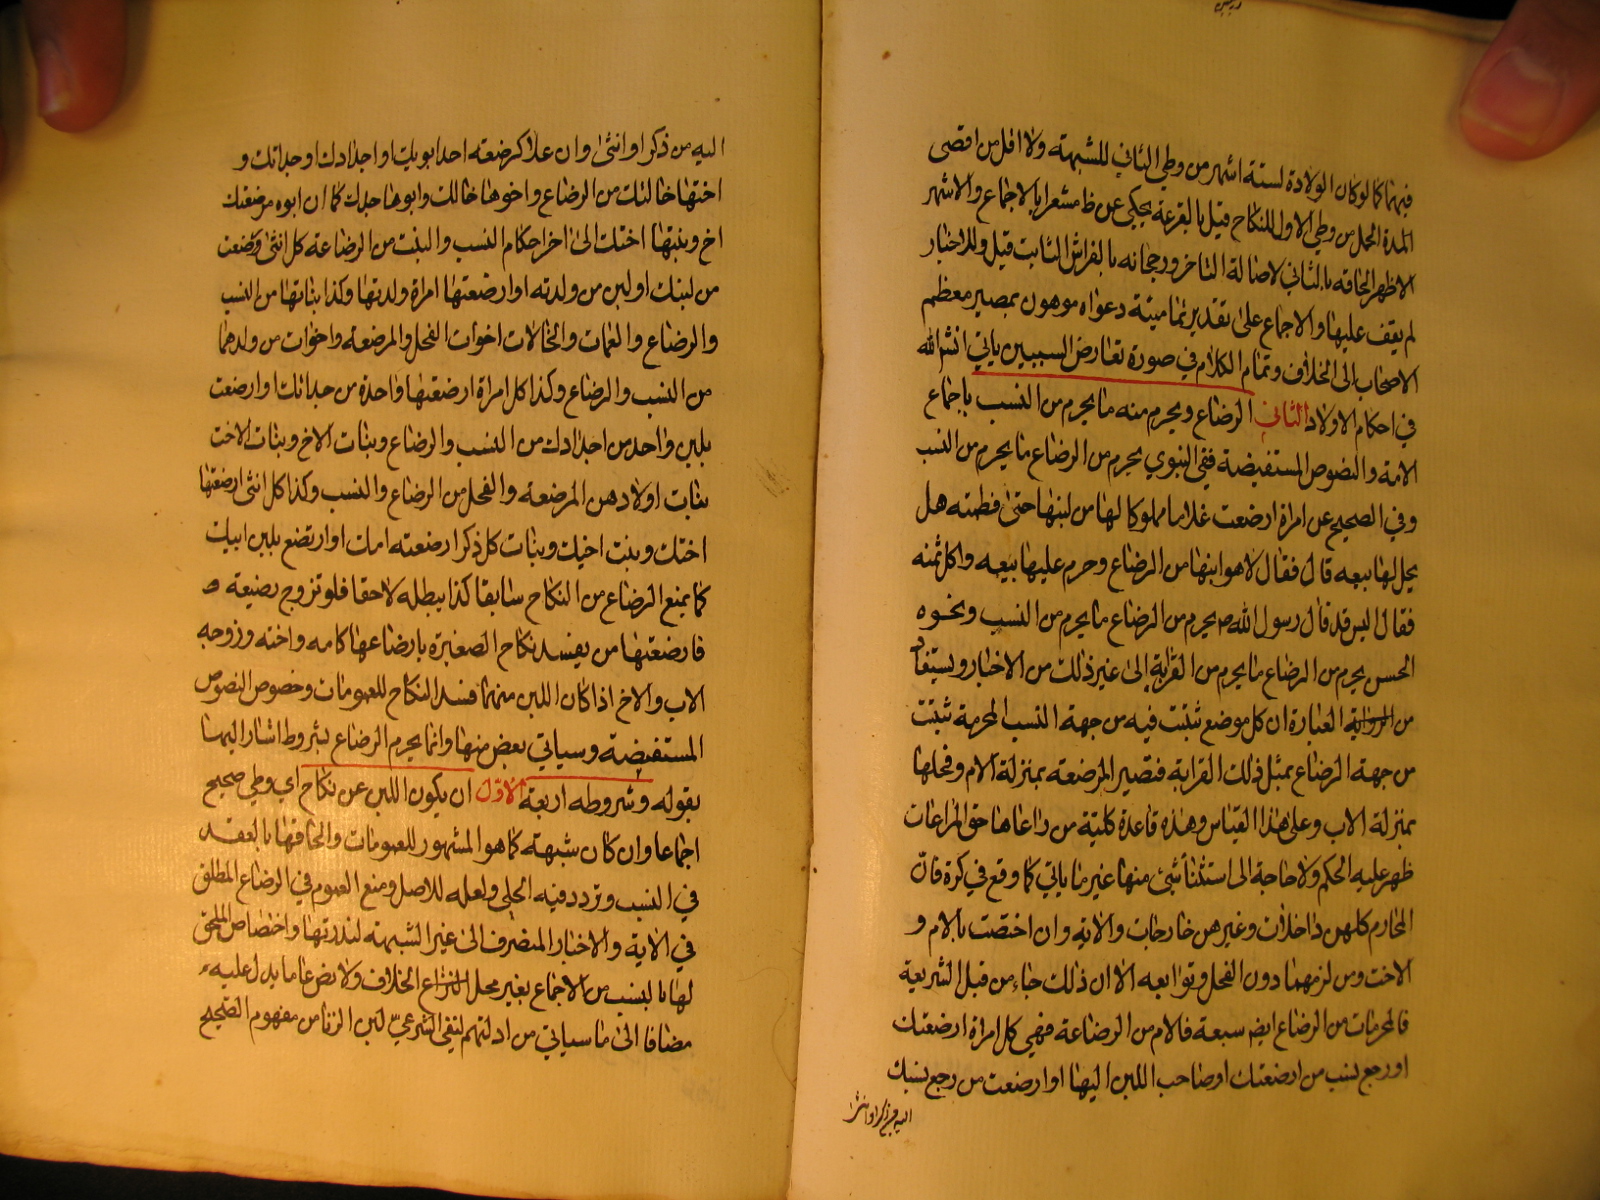 فيهما كما لو كان الولادة لستة اشهر من وطي الثاني للشبهة ولا اقل من اقصى
المدة الحمل من وطي الاول للنكاح قيل بالقرعة يحكى عن ظ مشعرا بالاجماع والاشهر
الاظهر الحاقه بالثاني لاصالة التاخر ورجحانه بالفراش الثابت قيل وللاخبار
لم يقف عليها والاجماع على تقدير تمامية دعواه موهون بمصير معظم
الاصحاب الى الخلاف وتمام الكلام في صورة تعارض السببين ياتي انشر الله
في احكام الاولاد الثاني الرضاع ويحرم منه ما يحرم من النسب باجماع
الامة والنصوص المستفيضة ففي النبوي يحرم من الرضاع ما يحرم من النسب
وفي الصحيح عن امراة ارضعت غلاما مملوكا لها من لبنها حتى فطمته هل
يحل لها بيعه قال فقال لا هو ابنها من الرضاع وحرم عليها بيعه واكل ثمنه
فقال اليس قد قال رسول الله ص يحرم من الرضاع ما يحرم من النسب ونحوه
الحسن يحرم من الرضاع ما يحرم من القرابة الى غير ذلك من الاخبار ويستفاد
من الرواية العبارة ان كل موضع ثبتت فيه من جهة النسب المحرمة ثبتت
من جهة الرضاع بمثل ذلك القرابة فتصير المرضعة بمنزلة الام وفحلها
بمنزلة الاب وعلى هذا القياس وهذه قاعدة كلية من راعاها حق المراعات
ظهر عليه الحكم ولا حاجة الى استثنا شئ منها غير ما ياتي كما وقع في كرة فان
المحارم كلهن داخلات وغيرهن خارجات والاية وان اختصت بالام و
الاخت ومن لزمهما دون الفحل وتوابعه الا ان ذلك جاء من قبل الشريعة
فالمحرمات من الرضاع ايضا سبعة فالام من الرضاعة فهي كل امراة ارضعتك
او رجع نسب من ارضعتك او صاحب اللبن اليها او ارضعت من رجع نسبك
اليه من ذكر او انثى
اليه من ذكر او انثى وان علا كرضعته احد ابويك او اجدادك او جداتك و
اختها خالتك من الرضاع واخوها خالك وابوها جدك كما ان ابوه مرضعتك
اخ وبنتها اختك الى اخر احكام النسب والبنت من الرضاعة كل انثى رضعت
من لبنك او لبن من ولدته او ارضعتها امراة ولدتها وكذا بناتها من النسب
والرضاع والعمات والخالات اخوات الفحل والمرضعة واخوات من ولدهما
من النسب والرضاع وكذا كل امراة ارضعتها واحدة من جداتك او ارضعت
بلبن واحد من اجدادك من النسب والرضاع وبنات الاخ وبنات الاخت
بنات اولادهن المرضعة والفحل من الرضاع والنسب وكذا كل انثى ارضعتها
اختك وبنت اخيك وبنات كل ذكر ارضعته امك او ارتضع بلبن ابيك
كما يمنع الرضاع من النكاح سابقا كذا يبطله لاحقا فلو تزوج رضيعة
فارضعتها من يفسد نكاح الصغيرة بارضاعها كامه واخته وزوجه
الاب والاخ اذا كان اللبن منهما فسد النكاح للعمومات وخصوص النصوص
المستفيضة وسياتي بعض منها وانما يحرم الرضاع بشروط اشار اليها
بقوله وشروطه اربعة الاول ان يكون اللبن عن نكاح اي وطي صحيح
اجماعا وان كان شبهة كما هو المشهور للعمومات والحاقها بالعقد
في النسب وتردد فيه الحلي ولعله للاصل ومنع العموم في الرضاع المطلق
في الاية والاخبار المنصرف الى غير الشبهة لندرتها واختصاص الملحق
لها بالنسب من الاجماع بغير محل النزاع الخلاف ولا نص عاما يدل عليه
مضافا الى ما سياتي من ادلتهم لنفي الشرعي لبن الزنا من مفهوم الصحيح